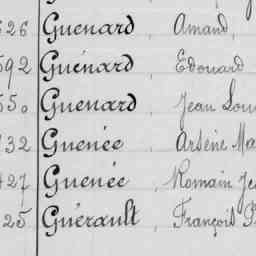 526 Guenard, Amand
592 Guénard, Edouard
550 Guenard, Jean Lou
132 Guenée, Arsène Ma
427 Guenée, Romain Je
25 Guérault, François P